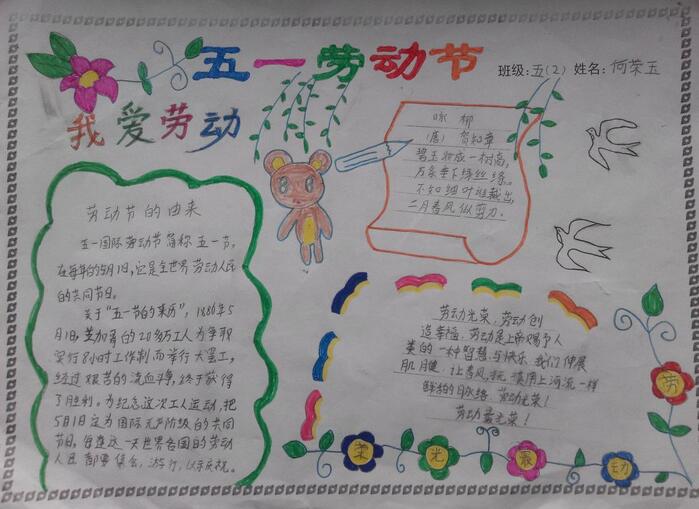 五一劳动节
班级:五(2) 姓名:何荣玉
我爱劳动
咏柳
(唐) 贺知章
碧玉妆成一树高,
万条垂下绿丝绦。
不知细叶谁裁出,
二月春风似剪刀。
劳动节的由来
五一国际劳动节简称五一节,
在每年的5月1日,它是全世界劳动人民
的共同节日。
关于“五一节的来历”,1886年5
月1日,芝加哥的20多万工人为争取
实行8小时工作制而举行大罢工,
经过艰苦的流血斗争,终于获得
了胜利。为纪念这次工人运动,把
5月1日定为国际无产阶级的共同
节日。每逢这一天世界各国的劳动
人民都要集会,游行,以示庆祝。
劳动光荣,劳动创
造幸福,劳动是上帝赐予人
类的一种智慧与快乐,我们伸展
肌腱,让春风,抚摸用上河流一样
鲜活的脉络,劳动光荣!
劳动最光荣!
劳
动
最
光
荣